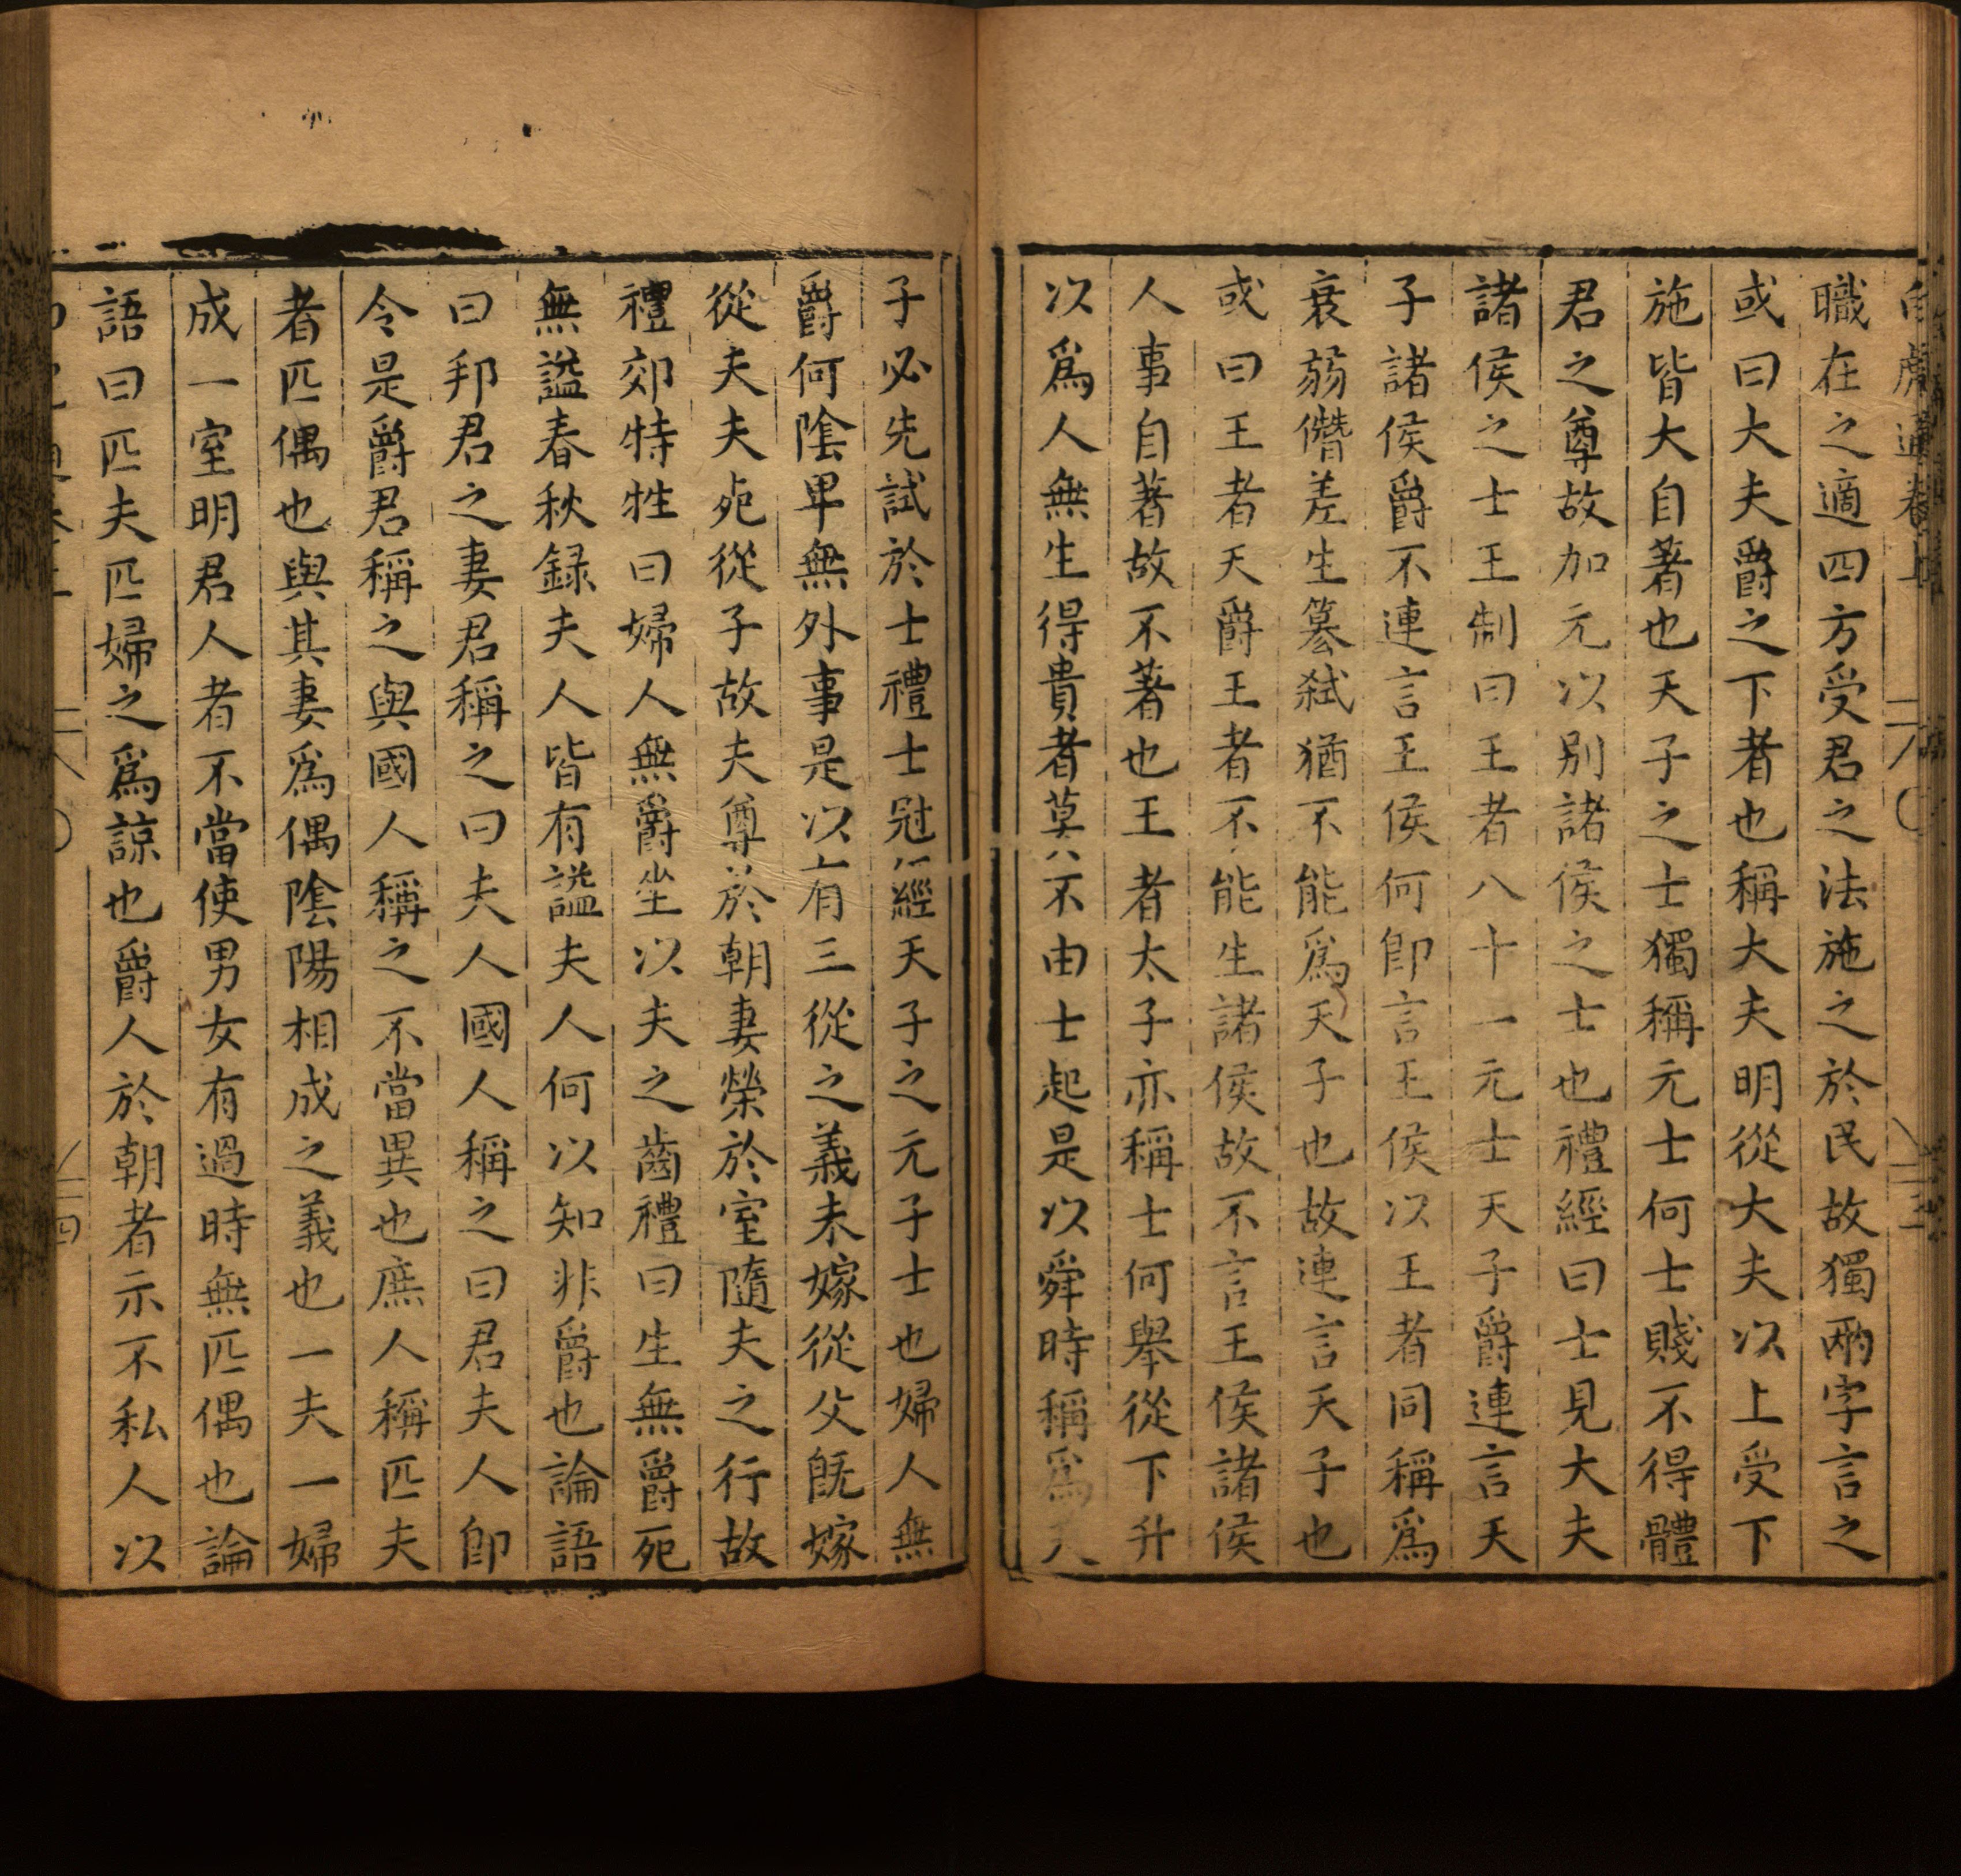 白虎通卷上
二
三
職在之適四方受君之法施之於民故獨兩字言之
或曰大夫爵之下者也稱大夫明從大夫以上受下
施皆大自著也天子之士獨稱元士何士賤不得體
君之尊故加元以別諸侯之士也禮經曰士見大夫
諸侯之士王制曰王者八十一元士天子爵連言天
子諸侯爵不連言王侯何卽言王侯以王者同稱爲
衰弱僭差生篡弒猶不能爲天子也故連言天子也
或曰王者天爵王者不能生諸侯故不言王侯諸侯
人事自著故不著也王者太子亦稱士何舉從下升
以爲人無生得貴者莫不由士起是以舜時稱爲天
子必先試於士禮士冠經天子之元子士也婦人無
爵何陰卑無外事是以有三從之義未嫁從父旣嫁
從夫夫死從子故夫尊於朝妻榮於室隨夫之行故
禮郊特牲曰婦人無爵坐以夫之齒禮曰生無爵死
無謚春秋録夫人皆有謚夫人何以知非爵也論語
曰邦君之妻君稱之曰夫人國人稱之曰君夫人卽
令是爵君稱之與國人稱之不當異也庶人稱匹夫
者匹偶也與其妻爲偶陰陽相成之義也一夫一婦
成一室明君人者不當使男女有過時無匹偶也論
語曰匹夫匹婦之爲諒也爵人於朝者示不私人以
四